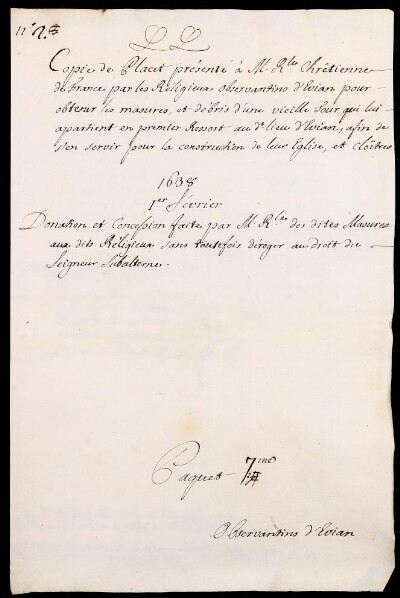 L L
Copie de Placet présenté à M. R.les Chrêtienne
de france par les Religieux observantins d'Evian pour
obtenir les masures, et débris d'une vieille Tour qui lui
appartient en premier Ressort au d.t lieu d'Evian, afin de
s'en servir pour la construction de leur Eglise, et Cloîtres
1638
1.er février
Donation et Concession faite par M. R.les des dites Masures
aux dits Religieux sans toutefois déroger au droit du
Seigneur Subalterne.
Paquet 7.me
Observantins d'Evian